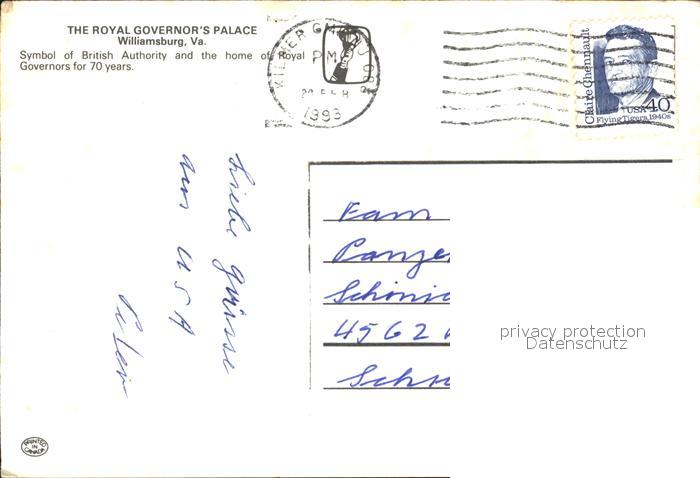 THE ROYAL GOVERNOR'S PALACE
Williamsburg, Va.
Symbol of British Authority and the home of Royal
Governors for 70 years.
KILMER GMF NJ 089
PM
FEB
1993
Claire Chennault
USA 40
Flying Tigers, 1940s
Liebe Grüsse
aus USA
Peter
Fam
4562
privacy protection
Datenschutz
PRINTED
IN
CANADA